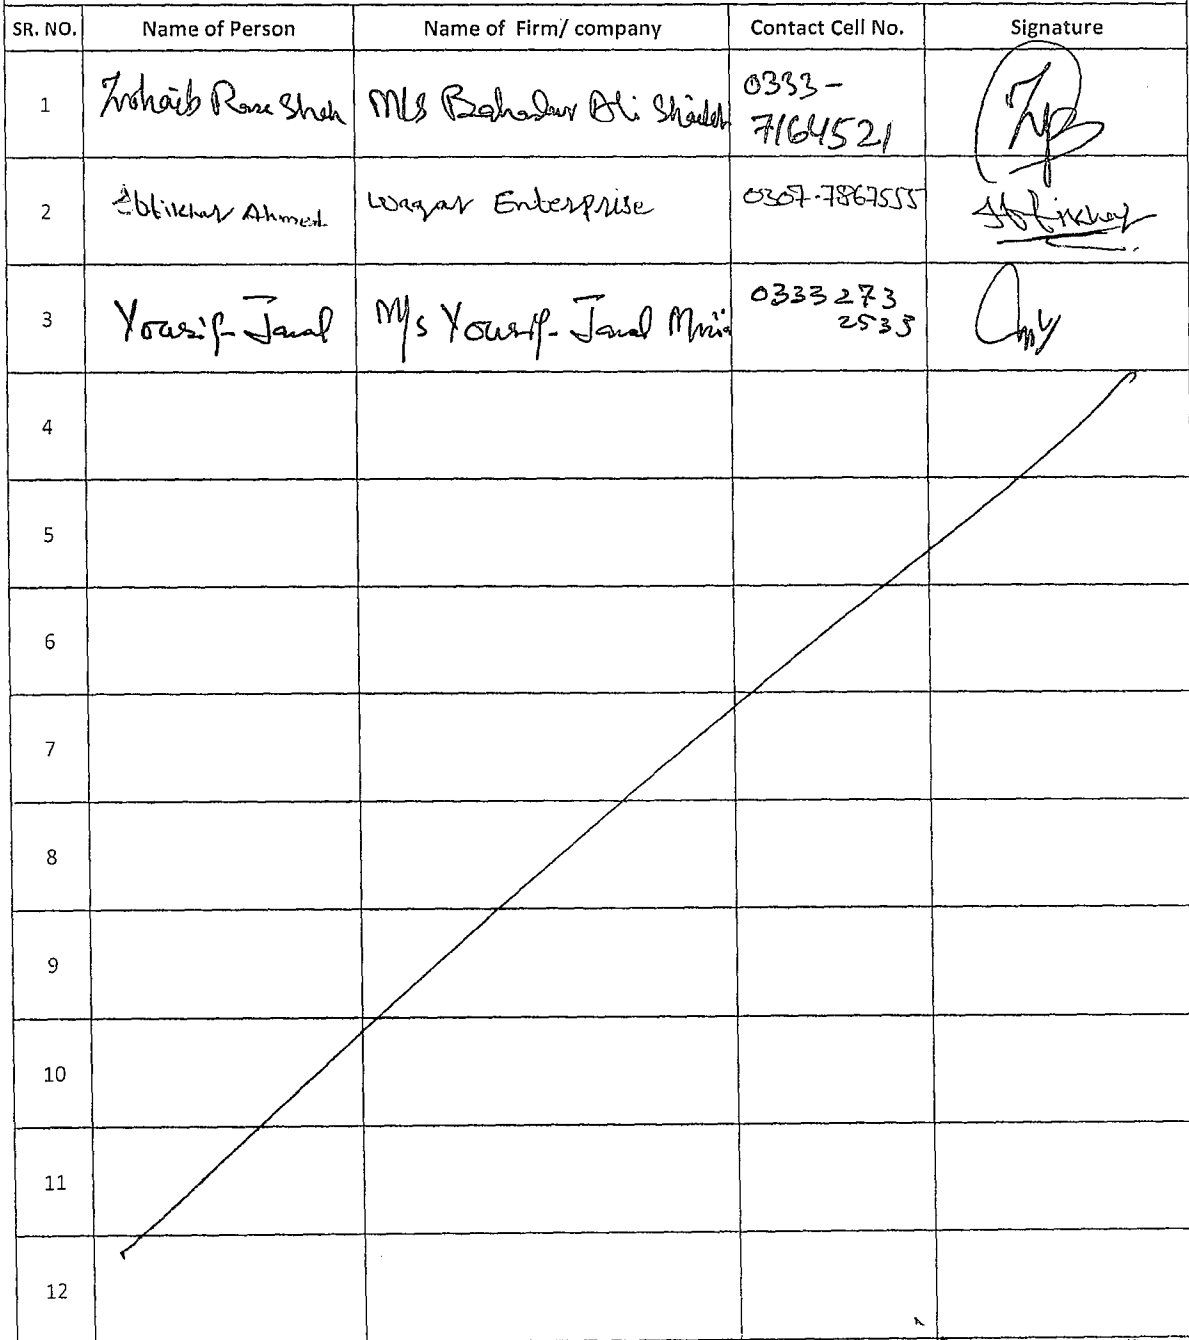 SR. NO. Name of Person Name of Firm/ company Contact Cell No. Signature
1 Zohaib Raza Shah M/s Bahadur Ali Shaikh 0333-
7164521
2 Iftikhar Ahmed Waqar Enterprise 0307-7867555 Iftikhar
3 Yousif Jamal M/s Yousif Jamal 0333 273
2533
4
5
6
7
8
9
10
11
12